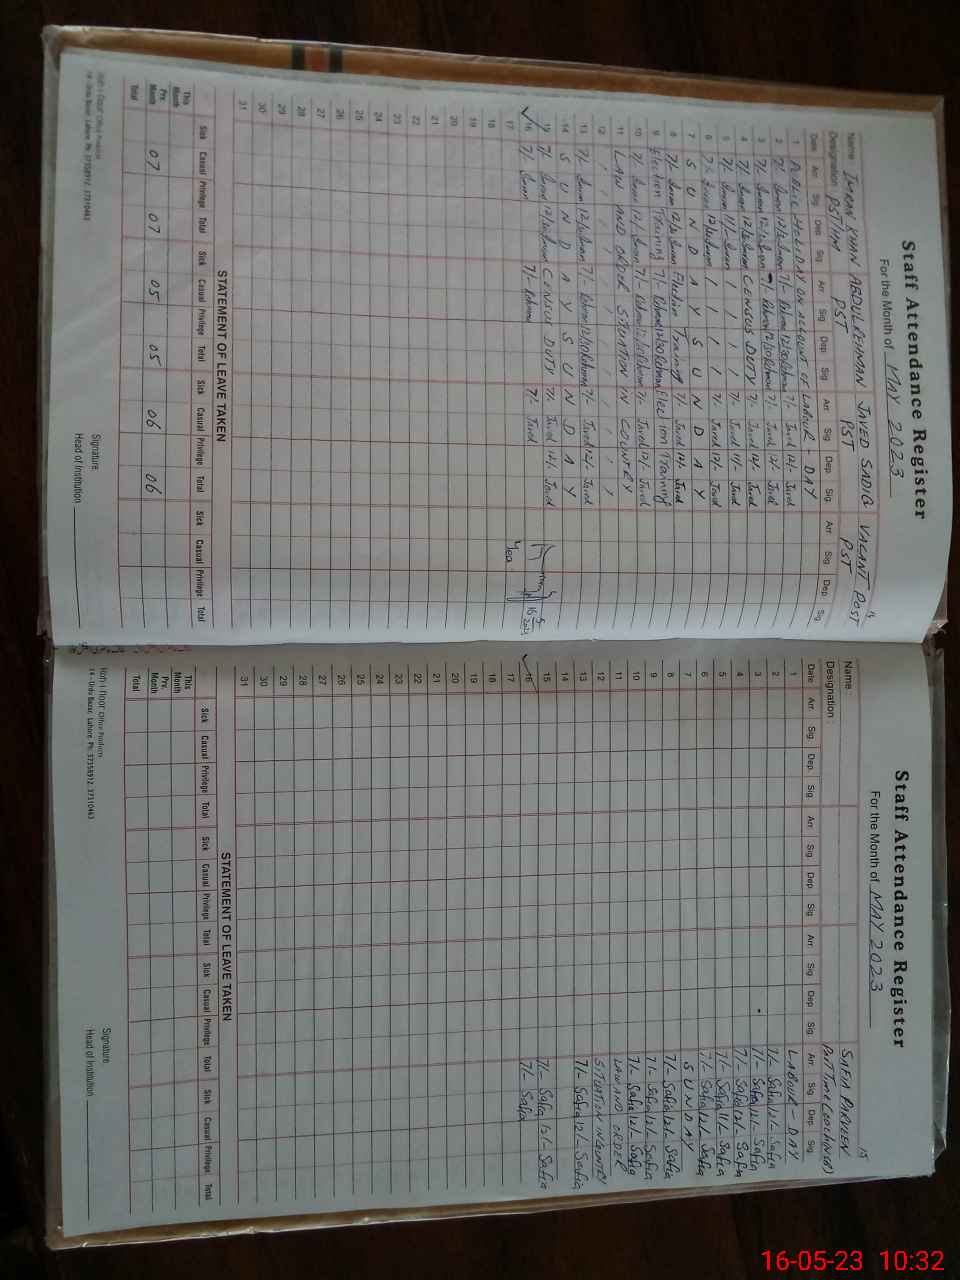 Staff Attendance Register
For the Month of MAY 2023
Name: IMRAN KHAN ABDULREHMAN JAVED SADIQ VACANT POST
Designation PST/HM PST PST PST
Date Arr. Sig. Dep. Sig. Arr. Sig. Dep. Sig. Arr. Sig. Dep. Sig. Arr. Sig. Dep. Sig.
1 PUBLIC HOLIDAY ON ACCOUNT OF LABOUR - DAY
2 7/- Imran 12/30 Imran 7/- Rehman 12/30 Rehman 7/- Javed 12/- Javed
3 7/- Imran 12/- Imran 7/- Rehman 12/30 Rehman 7/- Javed 12/- Javed
4 7/- Imran 12/30 Imran CENSUS DUTY 7/- Javed 12/- Javed
5 7/- Imran 11/- Imran 1 1 1 1 7/- Javed 11/- Javed
6 7/- Imran 12/30 Imran 1 1 1 1 7/- Javed 12/- Javed
7 S U N D A Y S U N D A Y
8 7/- Imran 12/30 Imran Election Training 7/- Javed 12/- Javed
9 Election Training 7/- Rehman 12/30 Rehman Election Training
10 7/- Imran 12/- Imran 7/- Rehman 12/- Rehman 7/- Javed 12/- Javed
11 LAW AND ORDER SITUATION IN COUNTRY
12
13 7/- Imran 12/30 Imran 7/- Rehman 12/30 Rehman 7/- Javed 12/- Javed
14 S U N D A Y S U N D A Y
15 7/- Imran 12/30 Imran CENSUS DUTY 7/- Javed 12/- Javed
16 7/- Imran 7/- Rehman 7/- Javed
17
18
19
20
21
22
23
24
25
26
27
28
29
30
31
STATEMENT OF LEAVE TAKEN
Sick Casual Privilege Total Sick Casual Privilege Total Sick Casual Privilege Total Sick Casual Privilege Total
This Month
Prv. Month 07 07 05 05 06 06
Total
Signature.
Head of Institution
14 - Urdu Bazar, Lahore. Ph: 37358912, 37310463
Staff Attendance Register
For the Month of MAY 2023
Name : SAFIA PARVEEN
Designation : Part Time Coaching
Date Arr. Sig. Dep. Sig. Arr. Sig. Dep. Sig. Arr. Sig. Dep. Sig. Arr. Sig. Dep. Sig.
1 LABOUR - DAY
2 7/- Safia 12/- Safia
3 7/- Safia 12/- Safia
4 7/- Safia 12/- Safia
5 7/- Safia 11/- Safia
6 7/- Safia 12/- Safia
7 S U N D A Y
8 7/- Safia 12/- Safia
9 7/- Safia 12/- Safia
10 7/- Safia 12/- Safia
11 LAW AND ORDER
12 SITUATION IN COUNTRY
13 7/- Safia 12/- Safia
14
15 7/- Safia 12/- Safia
16 7/- Safia
17
18
19
20
21
22
23
24
25
26
27
28
29
30
31
STATEMENT OF LEAVE TAKEN
Sick Casual Privilege Total Sick Casual Privilege Total Sick Casual Privilege Total Sick Casual Privilege Total
This Month
Prv. Month
Total
Signature
Head of Institution
14 - Urdu Bazar, Lahore. Ph: 37358912, 37310463
16-05-23 10:32